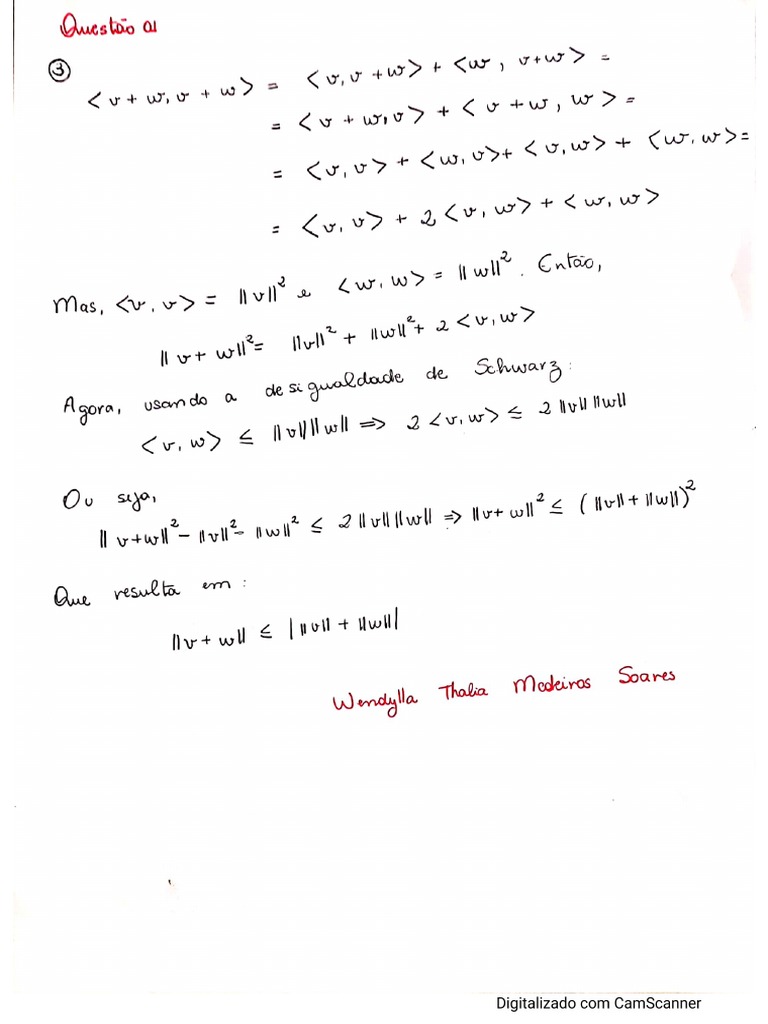 Questão 01
③
<v+w, v+w> = <v, v+w> + <w, v+w> =
= <v+w, v> + <v+w, w> =
= <v, v> + <w, v> + <v, w> + <w, w> =
= <v, v> + 2 <v, w> + <w, w>
Mas, <v, v> = ||v||² e <w, w> = ||w||². Então,
||v+w||² = ||v||² + ||w||² + 2 <v, w>
Agora, usando a desigualdade de Schwarz:
<v, w> ≤ ||v|| ||w|| ⇒ 2 <v, w> ≤ 2 ||v|| ||w||
Ou seja,
||v+w||² - ||v||² - ||w||² ≤ 2 ||v|| ||w|| ⇒ ||v+w||² ≤ (||v|| + ||w||)²
Que resulta em:
||v+w|| ≤ | ||v|| + ||w|| |
Wendylla Thalia Medeiros Soares
Digitalizado com CamScanner